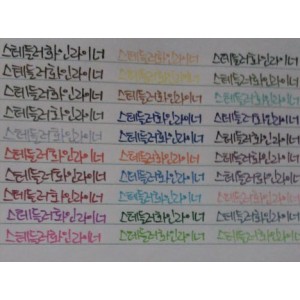 스테들러화인라이너 스테들러화인라이너 스테들러화인라이너
스테들러화인라이너 스테들러화인라이너 스테들러화인라이너
스테들러화인라이너 스테들러화인라이너 스테들러화인라이너
스테들러화인라이너 스테들러화인라이너 스테들러화인라이너
스테들러화인라이너 스테들러화인라이너 스테들러화인라이너
스테들러화인라이너 스테들러화인라이너 스테들러화인라이너
스테들러화인라이너 스테들러화인라이너 스테들러화인라이너
스테들러화인라이너 스테들러화인라이너 스테들러화인라이너
스테들러화인라이너 스테들러화인라이너 스테들러화인라이너
스테들러화인라이너 스테들러화인라이너 스테들러화인라이너